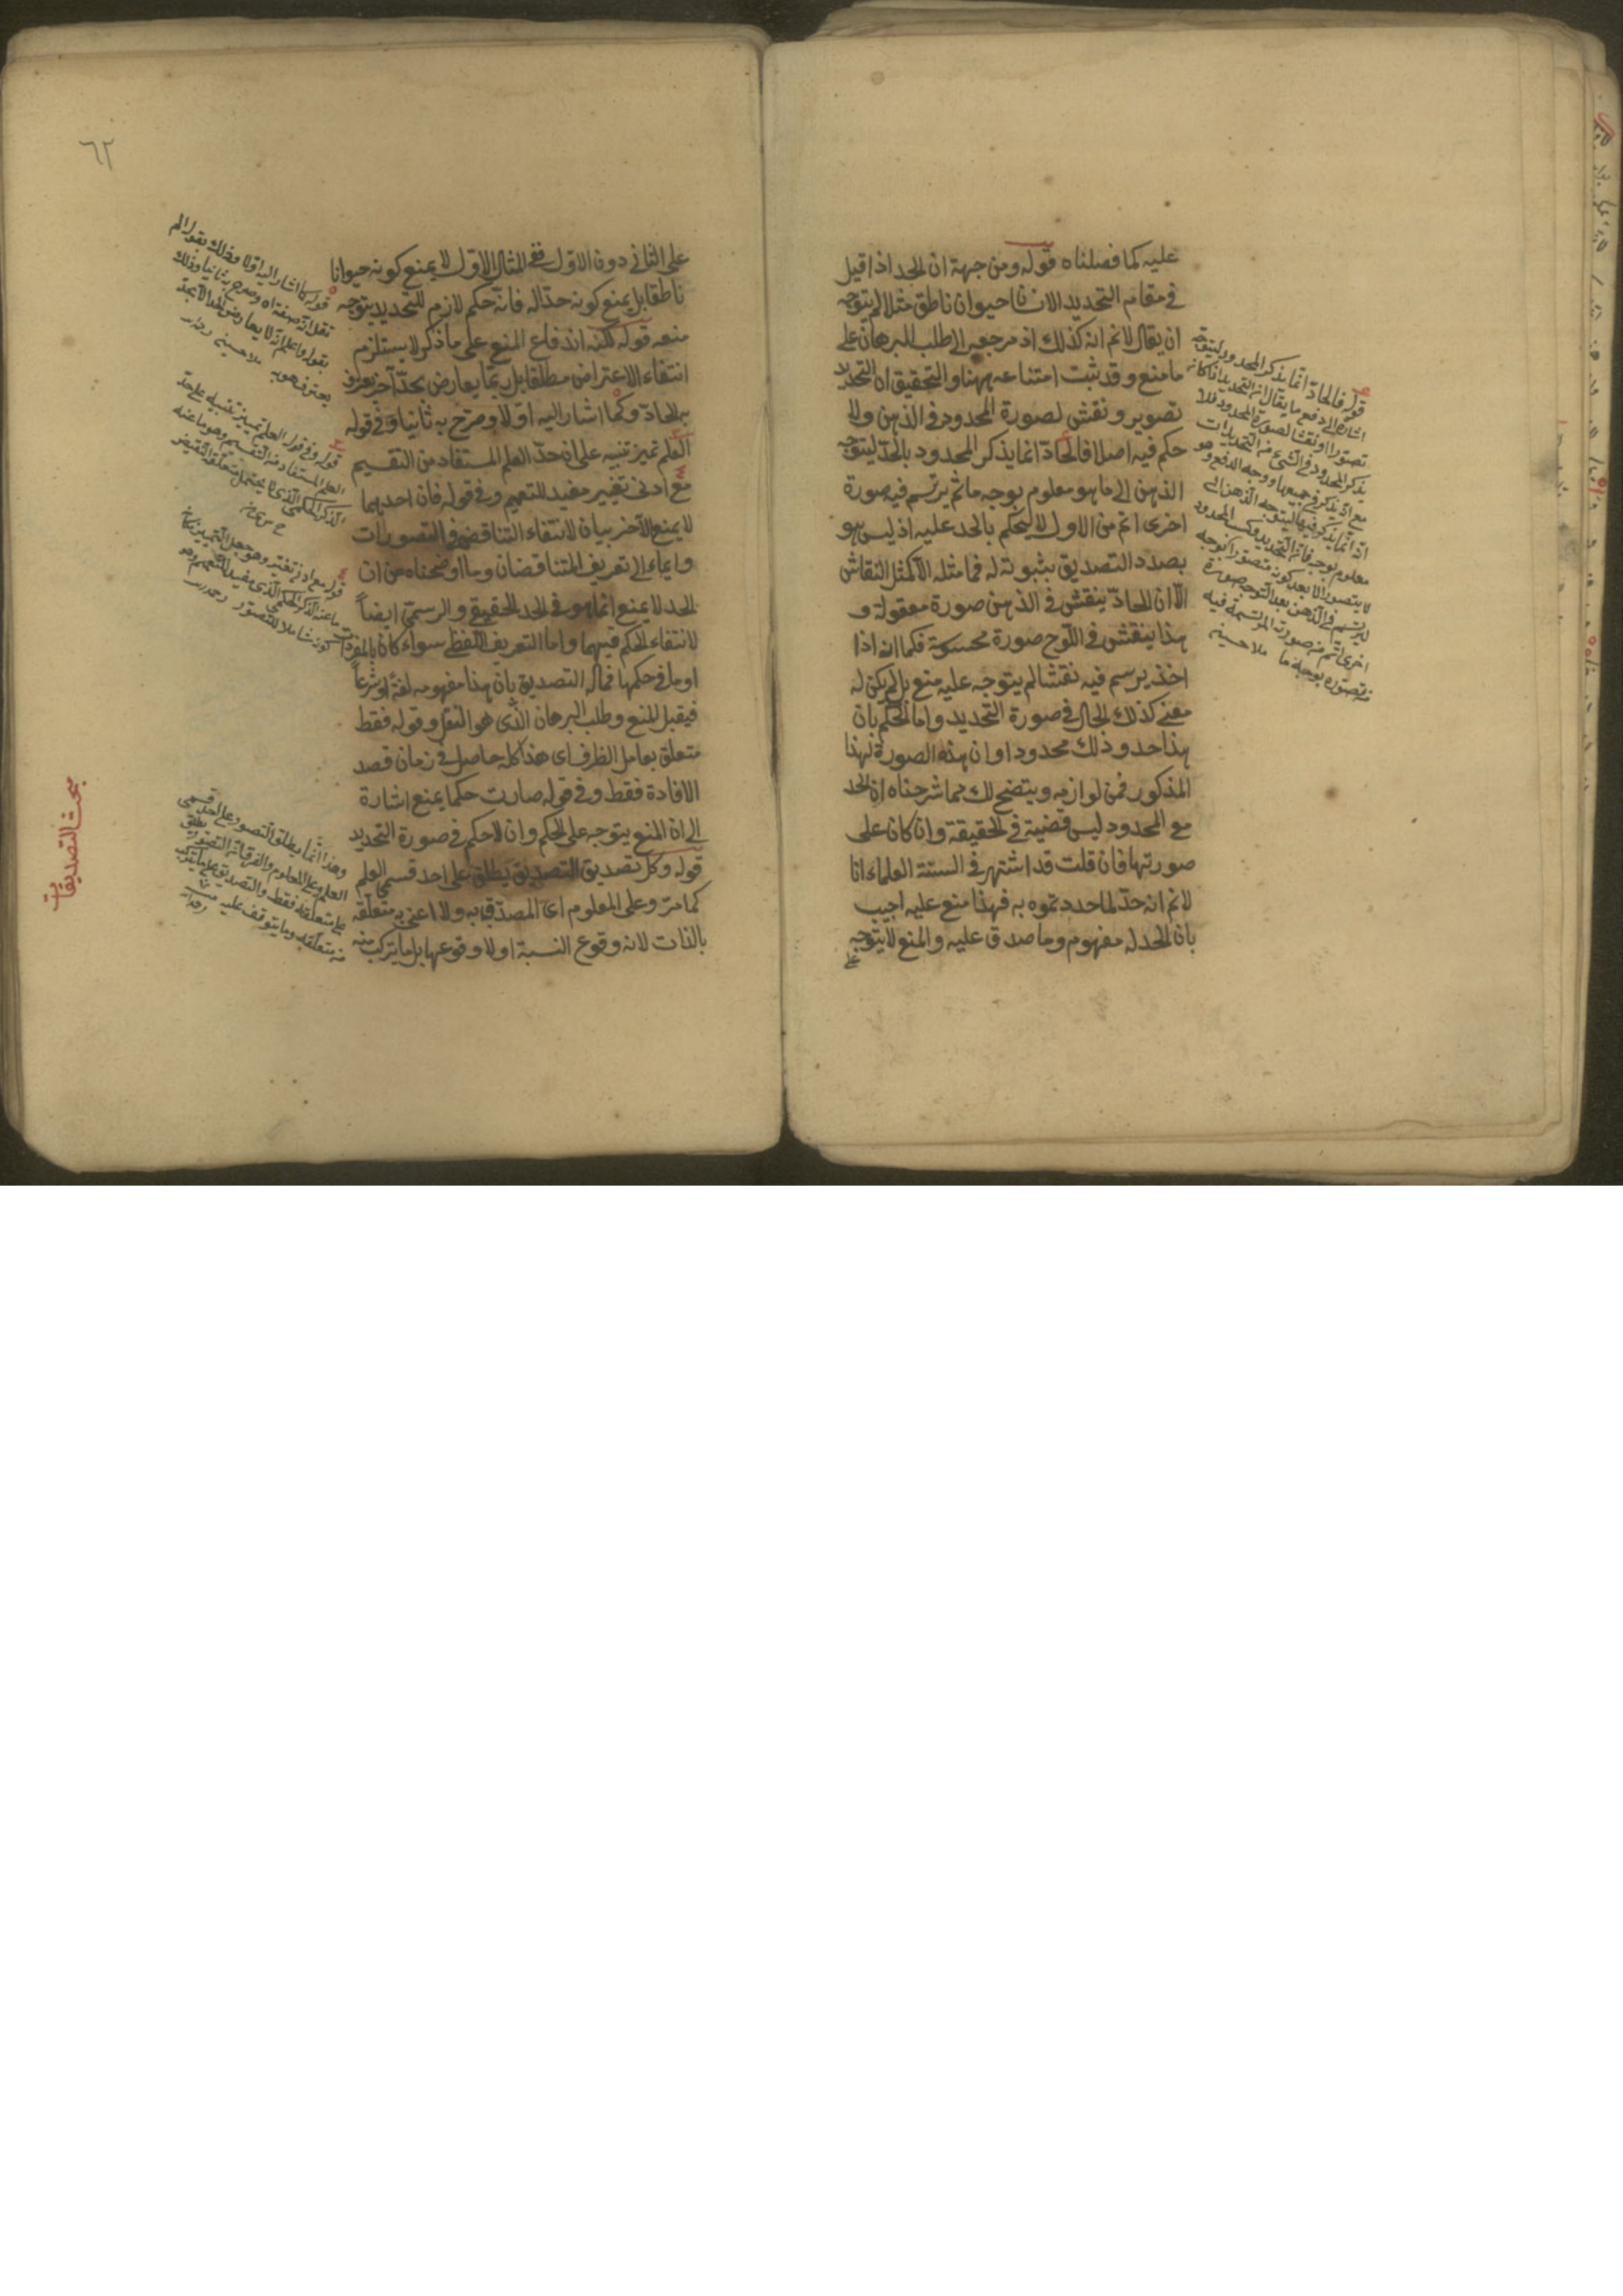 عليه كما فصلناه قوله ومن جهة ان الحد اذا قيل
في مقام التحديد الانسان حيوان ناطق مثلا لم يتوجه
ان يقال لانم انه كذلك اذ مرجعه الى طلب البرهان على
ما منع وقد ثبت امتناعه ههنا والتحقيق ان التحديد
تصوير ونقش لصورة المحدود في الذهن ولا
حكم فيه اصلا فالحاد انما يذكر المحدود بالحد ليتوجه
الذهن الى ما هو معلوم بوجه ما ثم يرتسم فيه صورة
اخرى اتم من الاول لا ليحكم بالحد عليه اذ ليس هو
بصدد التصديق بثبوته له فما مثله الا كمثل النقاش
الا ان الحاد ينقش في الذهن صورة معقولة و
هذا ينقش في اللوح صورة محسوسة فكما انه اذا
اخذ يرسم فيه نقشا لم يتوجه عليه منع بل لم يكن له
معنى كذلك الحال في صورة التحديد واما الحكم بان
هذا حد وذلك محدود او ان هذه الصورة لهذا
المذكور فمن لوازمه ويتضح لك مما شرحناه ان الحد
مع المحدود ليس قضية في الحقيقة وان كان على
صورتها فان قلت قد اشتهر في السنة العلماء انا
لانم انه حد لما حددتموه به فهذا منع عليه اجيب
بان الحد له مفهوم وما صدق عليه والمنع لا يتوجه
على
قوله فالحاد انما يذكر المحدود ليتوجه
اشارة الى دفع ما يقال ان التحديد اذا كان
تصويرا ونقشا لصورة المحدود فلا
يذكر المحدود في شيء من التحديدات
مع انه يذكر في جميعها ووجه الدفع هو
انه انما يذكر فيها ليتوجه الذهن الى
معلوم بوجه فان التحديد وكسب المحدود
لا يتصور الا بعد كونه متصورا بوجه
ليرتسم في الذهن بعد التوجه صورة
اخرى اتم من صورته المرتسمة فيه
من تصوره بوجه ما ملا حسين
٦٢
على الثاني دون الاول ففي المثال الاول لا يمنع كونه حيوانا
ناطقا بل يمنع كونه حدا له فانه حكم لازم للتحديد يتوجه
منعه قوله لكنه اندفاع المنع على ما ذكر لا يستلزم
انتفاء الاعتراض مطلقا بل ربما يعارض بحد آخر يعترف
به الحاد وكما اشار اليه اولا وصرح به ثانيا وفي قوله
العلم تميز تنبيه على ان حد العلم المستفاد من التقسيم
مع ادنى تغيير مفيد للتعميم وفي قوله فان احدهما
لا يمنع الآخر بيان لانتفاء التناقض في التصورات
وايماء الى تعريف المتناقضان وما اوضحناه من ان
الحد لا يمنع انما هو في الحد الحقيقي والرسمي ايضاً
لانتفاء الحكم فيهما واما التعريف اللفظي سواء كان بالمفردات
او ما في حكمها فمآله التصديق بان هذا مفهومه لغة او شرعاً
فيقبل المنع وطلب البرهان الذي هو النقل وقوله فقط
متعلق بعامل الظرف اى هذا كله حاصل في زمان قصد
الافادة فقط وفي قوله صارت حكما يمنع اشارة
الى ان المنع يتوجه على الحكم وان لا حكم في صورة التحديد
قوله وكل تصديق التصديق يطلق على احد قسمى العلم
كما مر وعلى المعلوم اى المصدق به ولا اعنى به متعلقه
بالذات لانه وقوع النسبة او لا وقوعها بل ما يتركب منه
قوله كما اشار اليه اولا وذلك بقوله الم
نقل انه صفتاه وصرح به ثانيا وذلك
بقوله واعلم انه لا يعارض الحد الا بحد
يعترف هو به ملا حسين
قوله وفي قوله العلم تميز تنبيه على حد
العلم المستفاد من التقسيم وهو ما عنه
الذكر الحكمي الذي لا يحتمل متعلقه النقيض
قوله مع ادنى تغيير وهو جعل التمييز مكان
ما عنه الذكر الحكمي الذي مفيد للتعميم وهو
كونه شاملا للتصور
وهذا انما يطلق التصور على احد قسمى
العلم وعلى المعلوم والفرق انه التصور يطلق
على متعلقه فقط والتصديق على ما يتركب
من متعلقه وما يتوقف عليه
مبحث التصديقات